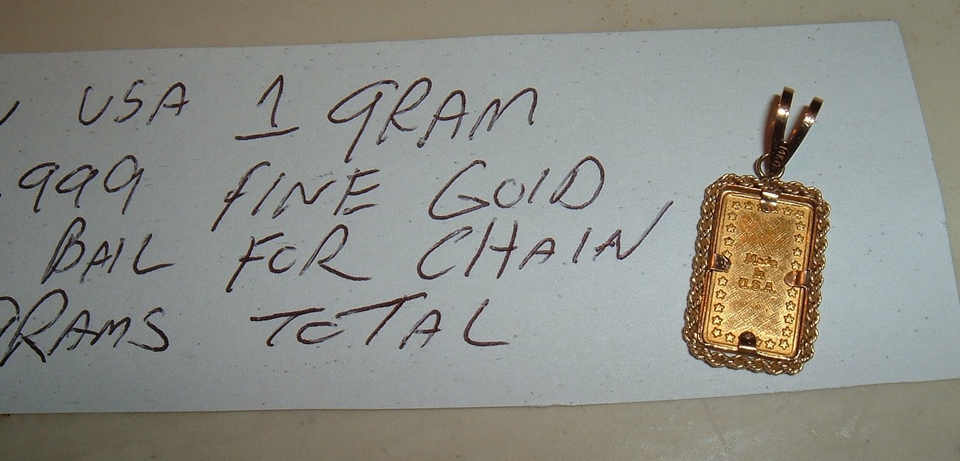 USA 1 GRAM
.999 FINE GOLD
BAIL FOR CHAIN
GRAMS TOTAL
14KG
Made
in
U.S.A.